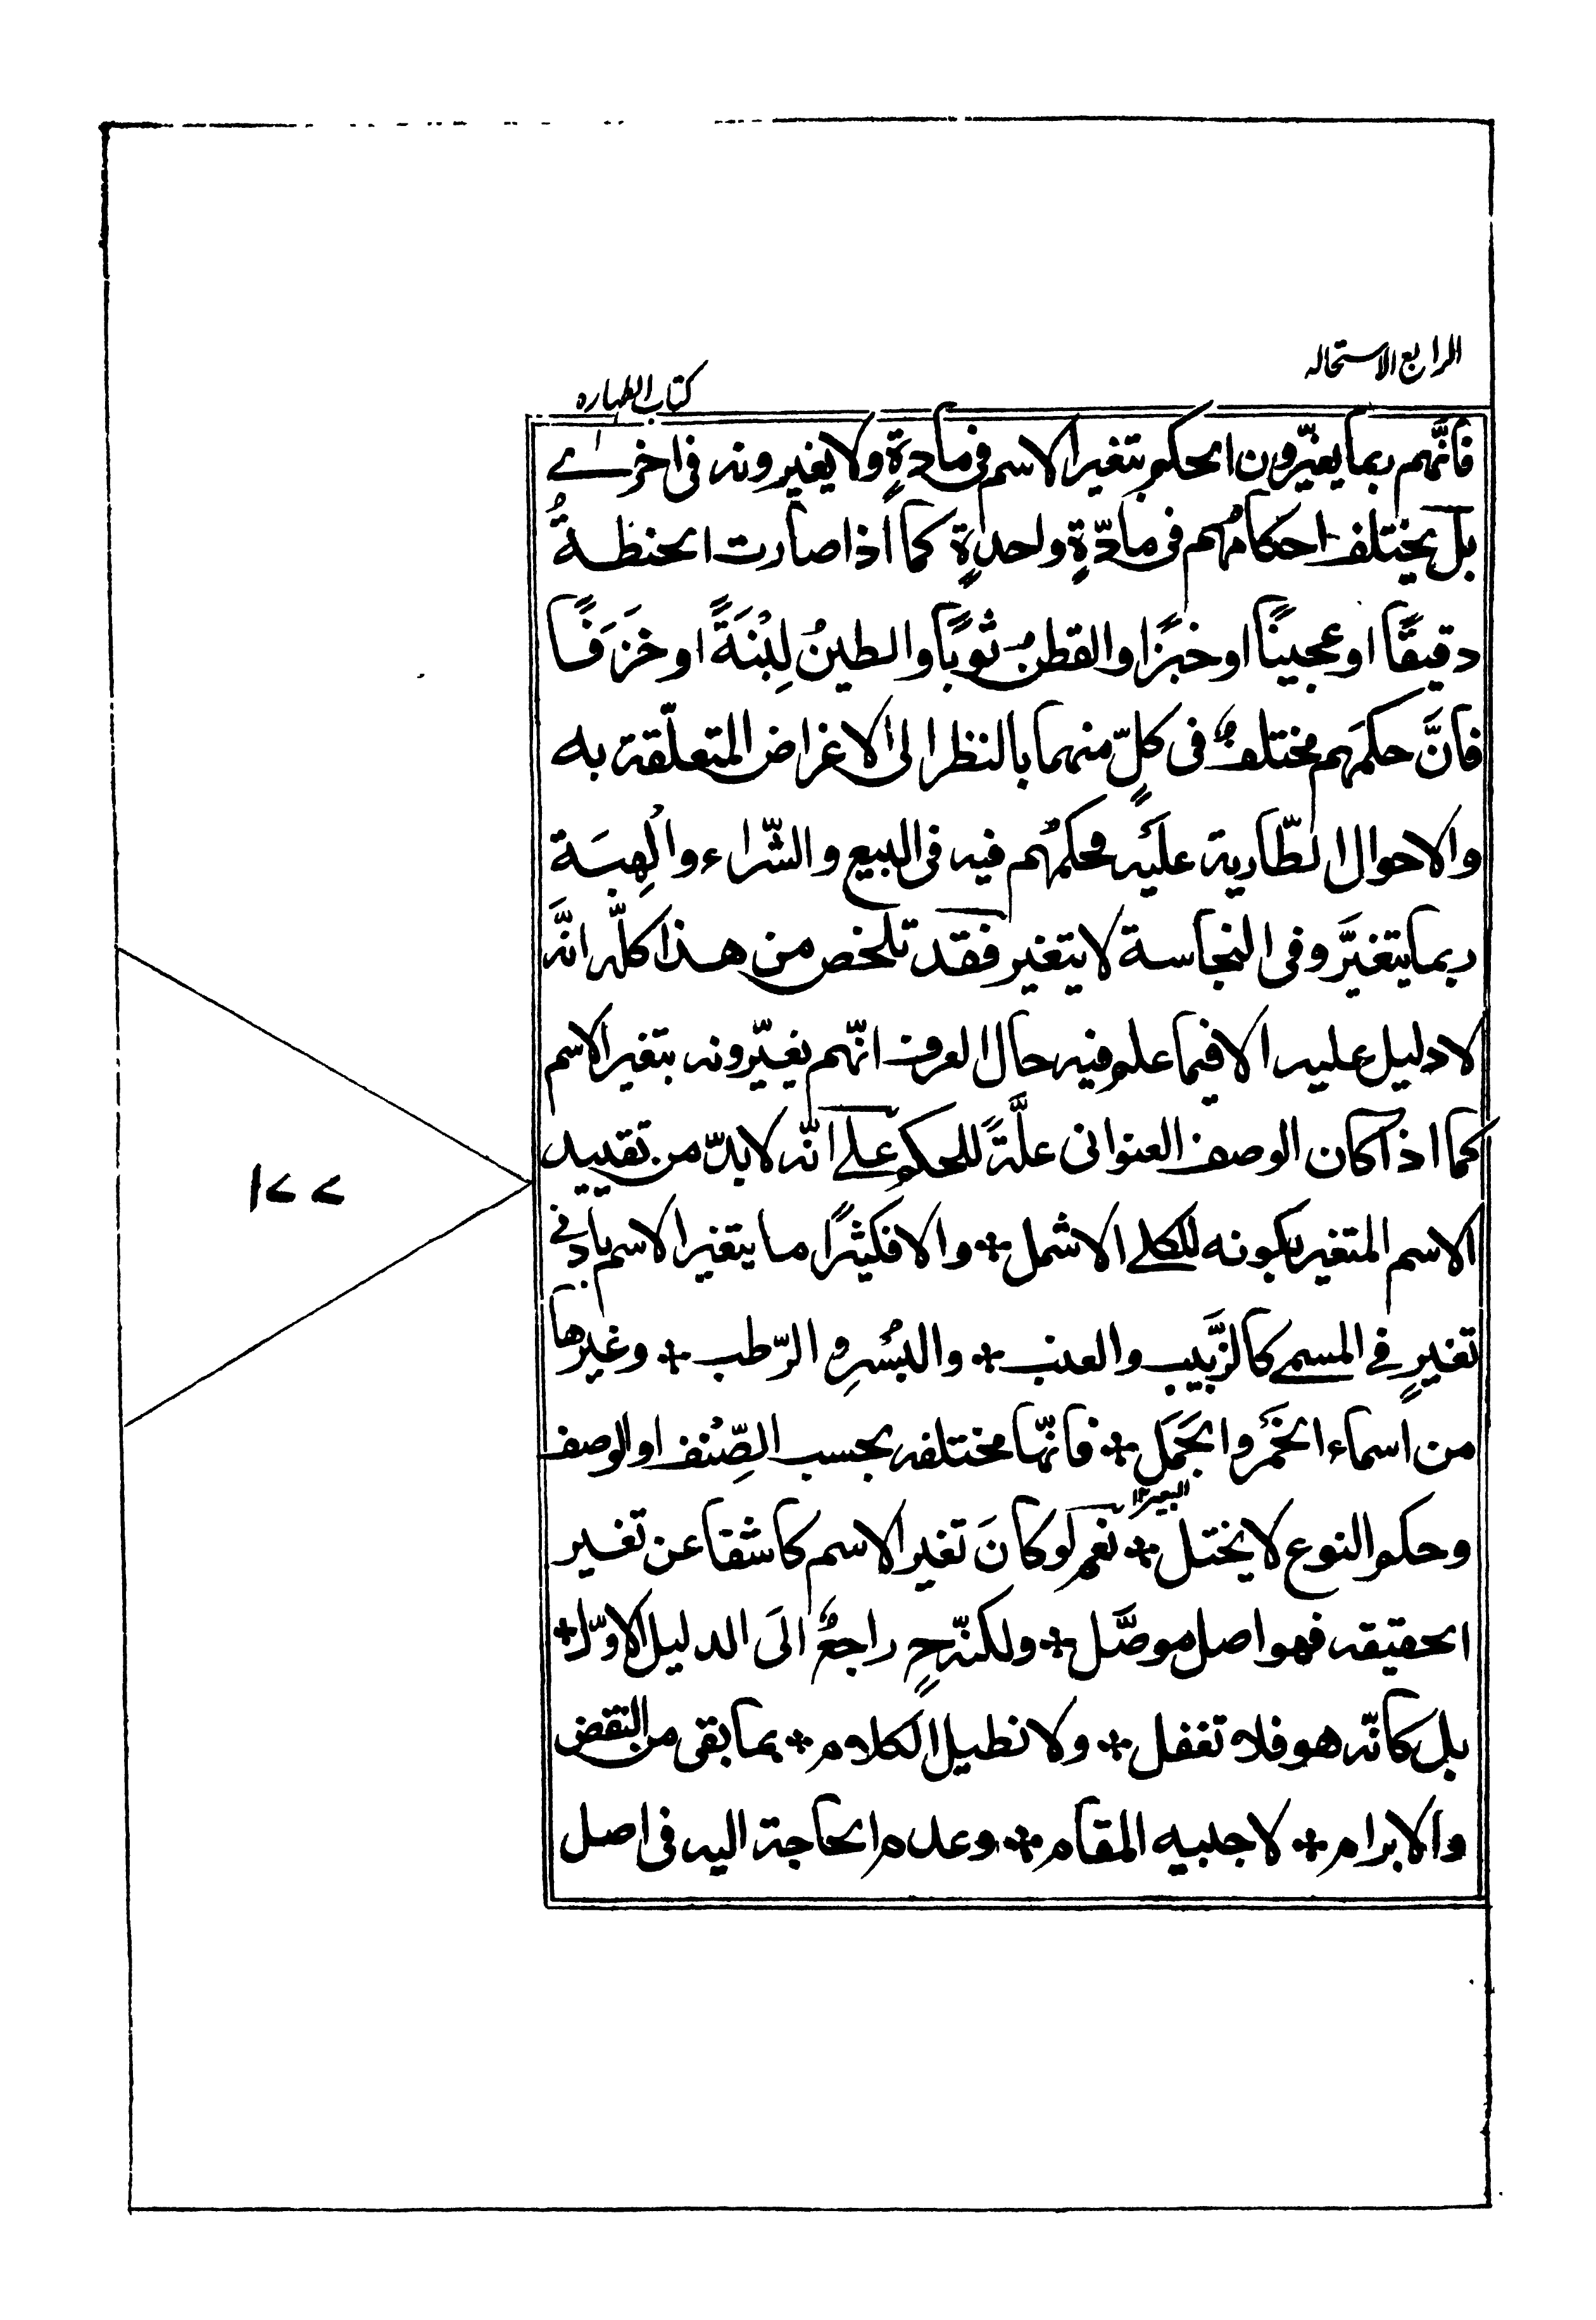 الرابع الاستحاله
كتاب الطهاره
فانَّهم ربما يغيّرون الحكم بتغير الاسم فى مادةٍ ولا يغيرونه فى اخرے
بل يختلف احكامُهم فى مادّةٍ واحدةٍ كما اذا صارت الحنطةُ
دقيقًا او عجينًا او خبزًا والقطنُ ثوبًا والطينُ لِبْنَةً او خَزَفًا
فانَّ حكمَهم مختلفٌ فى كلٍّ منهما بالنظر الى الاغراض المتعلّقة به
والاحوال الطّارية عليه فحكمُهم فيه فى البيع والشّراء والهِبَة
ربما يتغيَّر وفى النجاسة لا يتغير فقد تلخص من هذا كلّه انَّه
لا دليل عليه الا فيما علم فيه حال العرف انّهم يغيّرونه بتغير الاسم
كما اذا كان الوصف العنوانى علّةً للحكم على انّه لا بدّ من تقييد
الاسم المتغير بكونه للكلے الاشمل + والا فكثيرًا ما يتغير الاسم بادنے
تغيرٍ فے المسمے كالزَّبيب والعنب + والبُسْرِ و الرّطب + وغيرها
من اسماء الخَمْر والجَمَل + فانّها مختلفه بحسب الصِّنف او الوصف
البعير ١٢
وحكم النوع لا يختل + نعم لو كانَ تغير الاسم كاشفا عن تغير
الحقيقه فهو اصل موصَّل + ولكنّه حٍ راجعٌ الَى الدليل الاوّل +
بل كانّه هو فلا تغفل + ولا نطيل الكلام + بما بقى من النقض
والابرام + لاجلبيه المقام + وعدم الحاجة اليه فى اصل
١٧٧